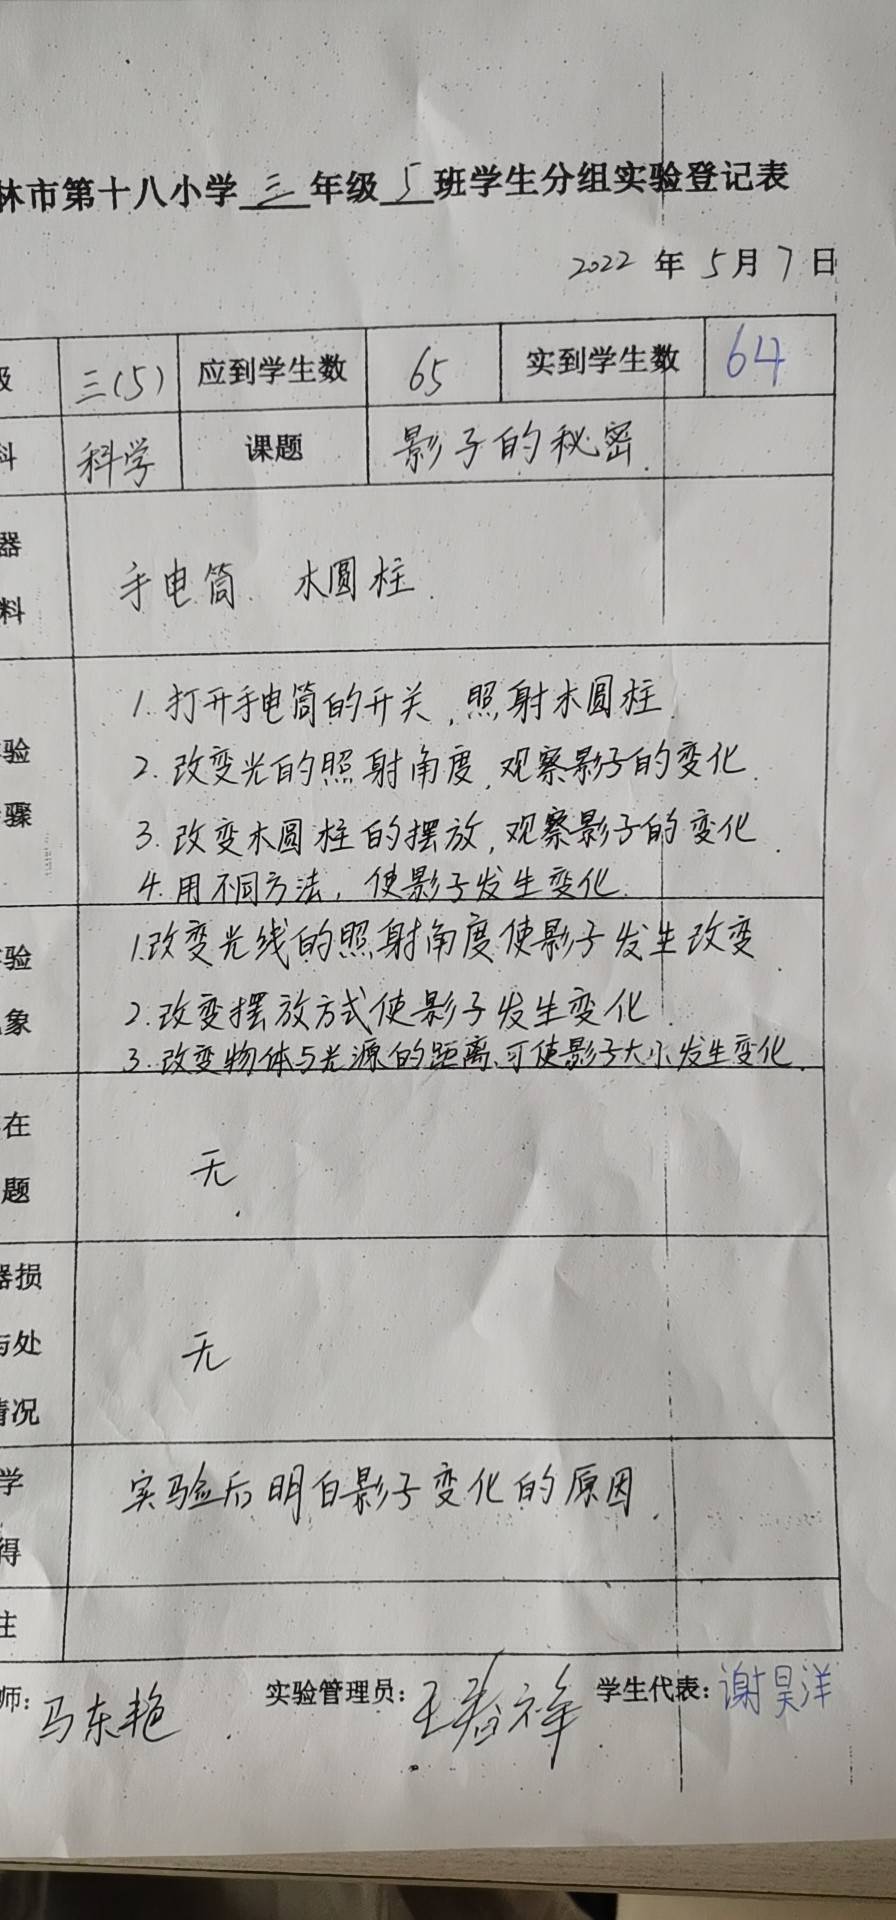 林市第十八小学三年级5班学生分组实验登记表
2022年5月7日
级 三(5) 应到学生数 65 实到学生数 64
科 科学 课题 影子的秘密.
器
料
手电筒. 木圆柱.
1.打开手电筒的开关,照射木圆柱.
2.改变光的照射角度,观察影子的变化.
验
骤
3.改变木圆柱的摆放,观察影子的变化.
4.用不同方法,使影子发生变化.
1.改变光线的照射角度使影子发生改变.
验
象
2.改变摆放方式使影子发生变化.
3.改变物体与光源的距离,可使影子大小发生变化.
在
题
无
器损
与处
情况
无
学
得
实验后明白影子变化的原因.
注
师:马东艳 实验管理员: 学生代表:谢昊洋